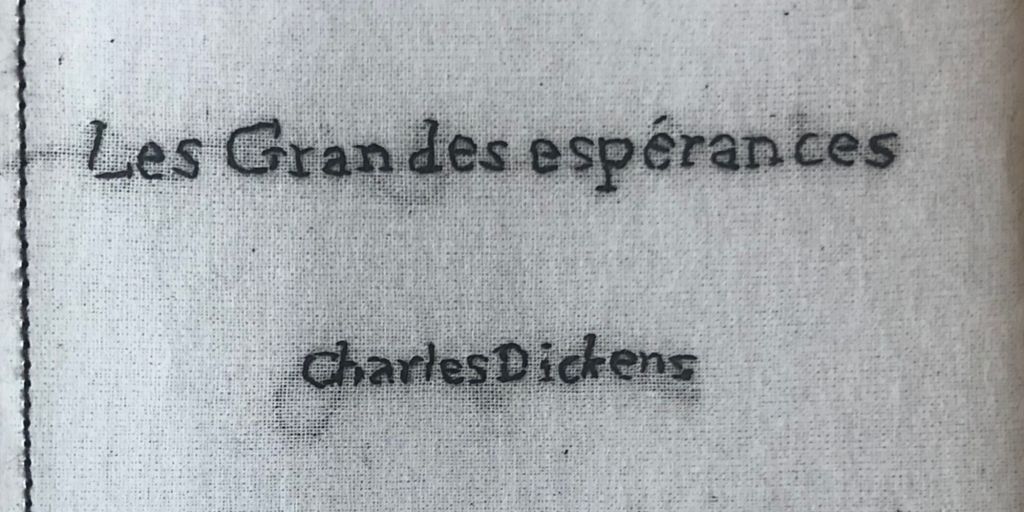 Les Grandes espérances
Charles Dickens